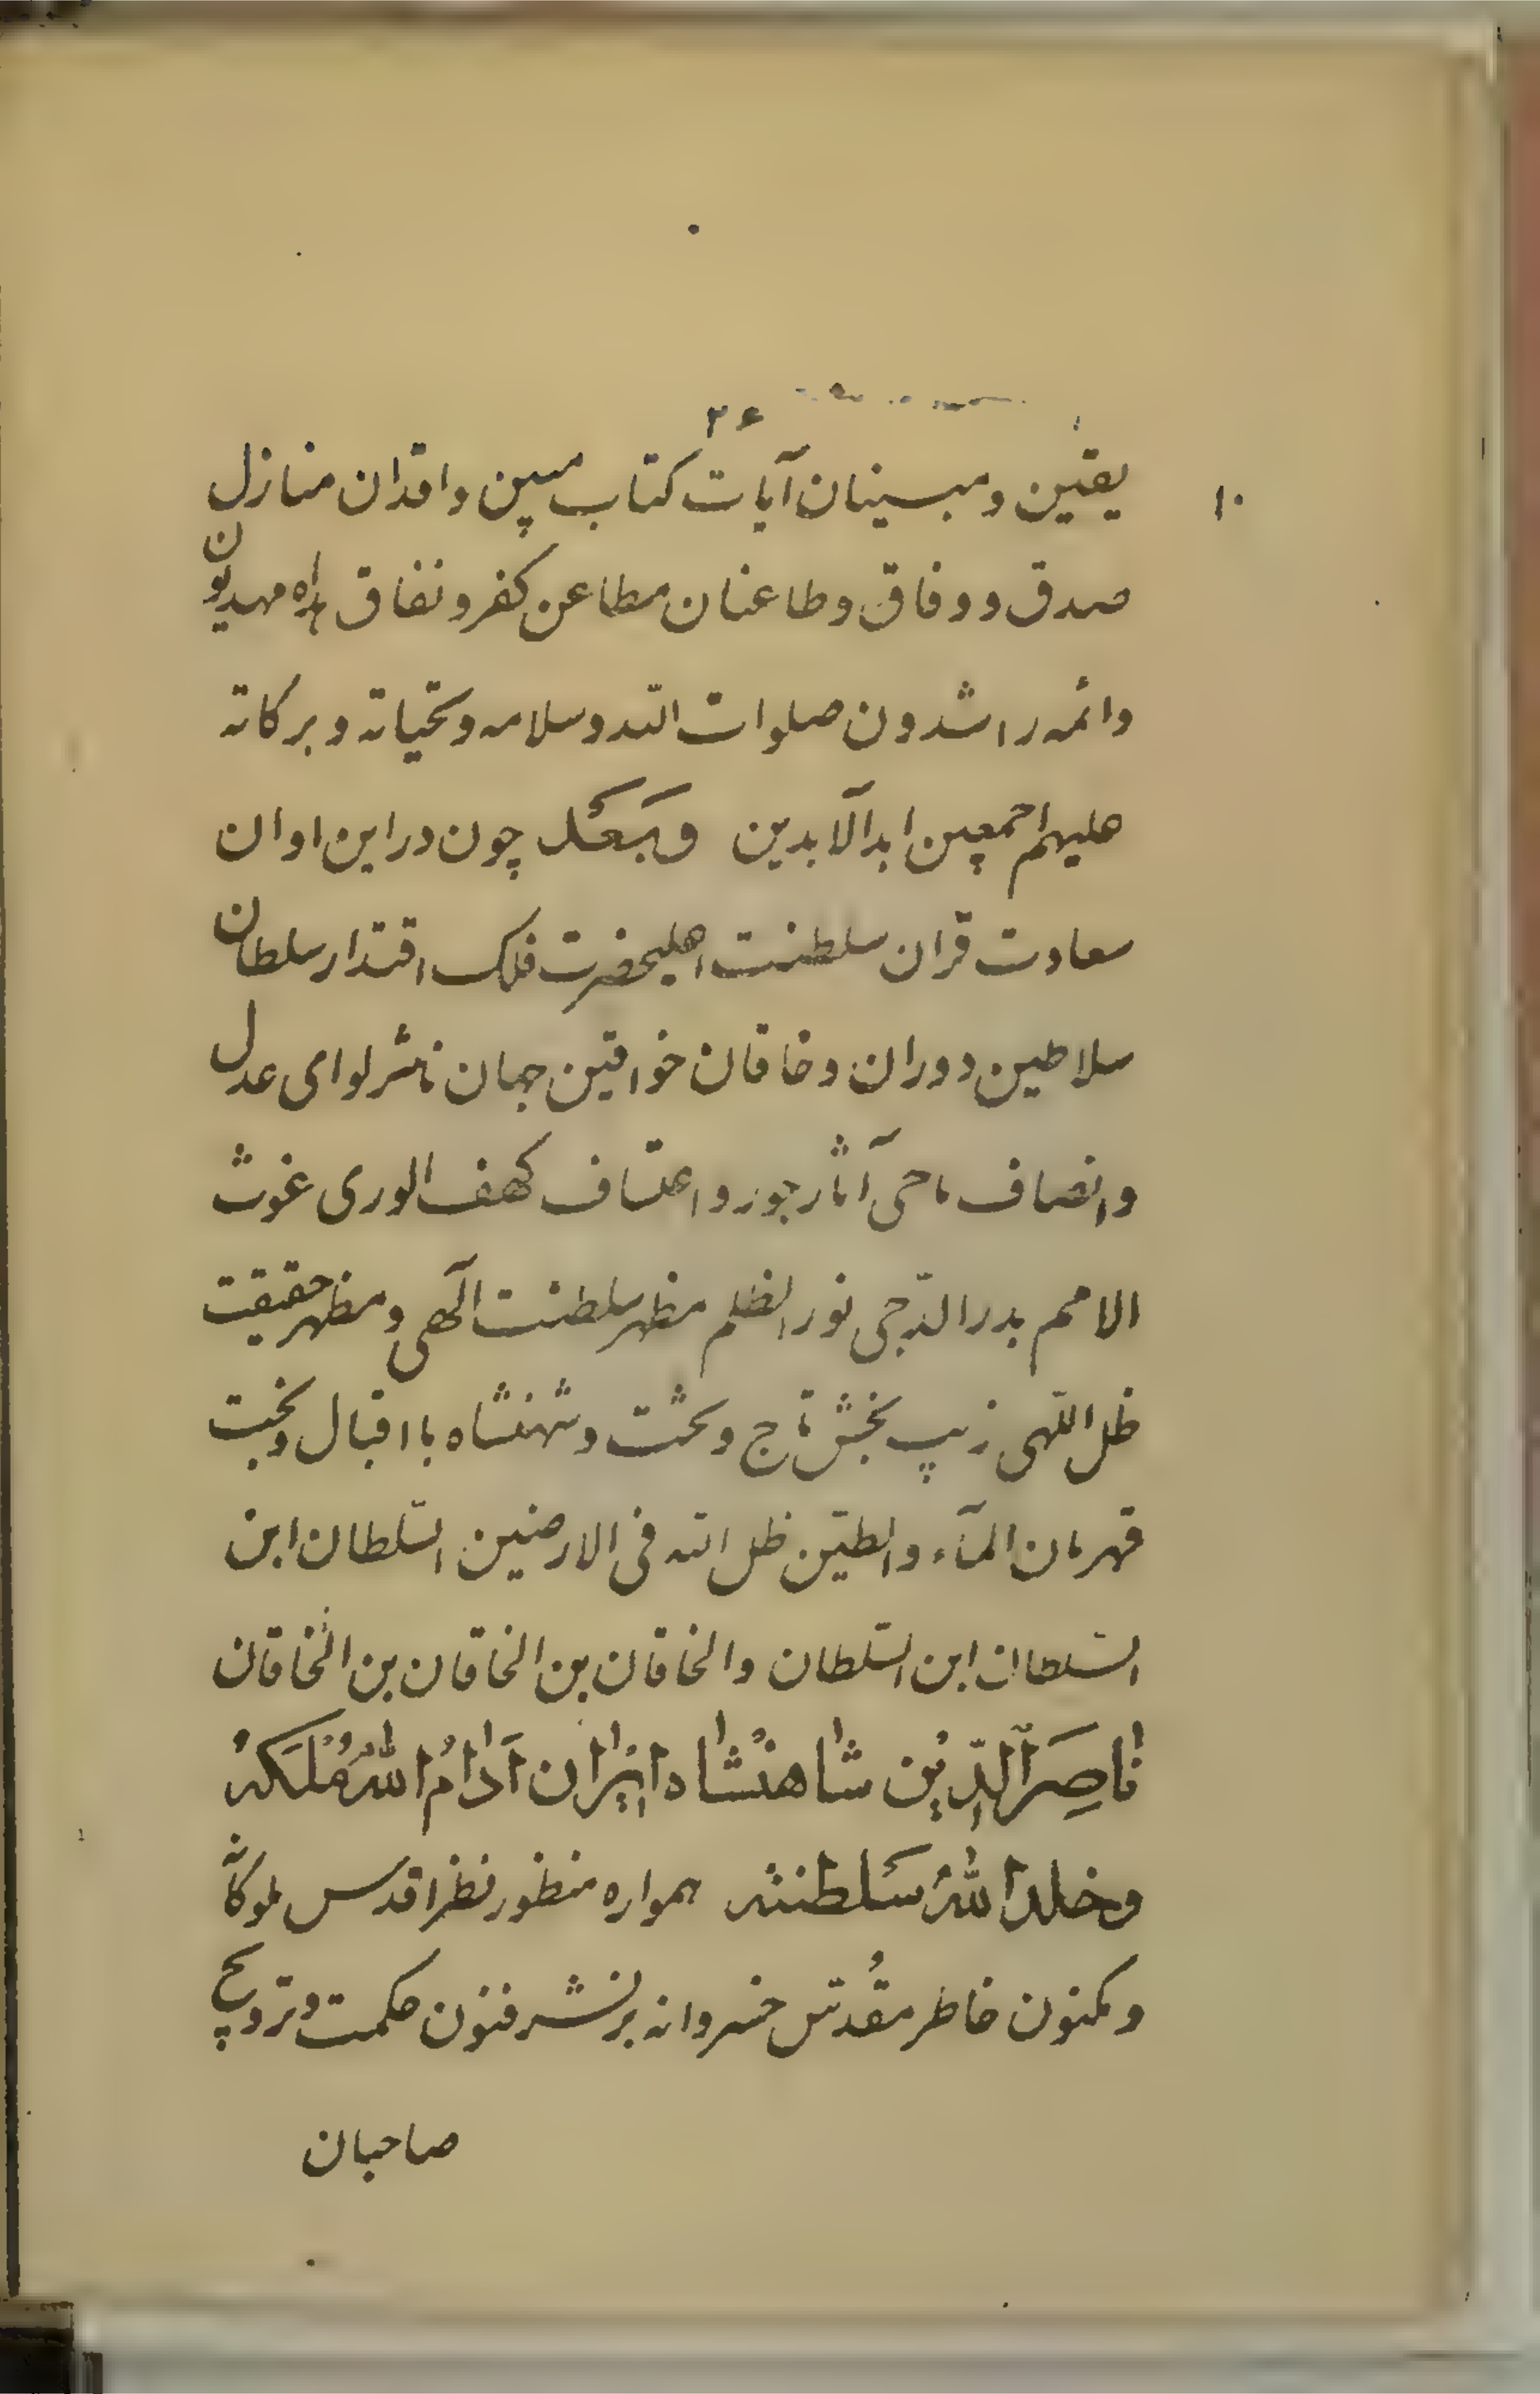 ۲۶
۱۰
یقین ومبینان آیات کتاب مبین واقدان منازل
صدق ووفاق وطاعنان مطاعن کفر ونفاق هداه مهدیون
وائمه راشدون صلوات الله وسلامه وتحیاته وبرکاته
علیهم اجمعین ابد الآبدین وبعد چون در این اوان
سعادت قران سلطنت اعلیحضرت فلک اقتدار سلطان
سلاطین دوران وخاقان خواقین جهان ناشر لوای عدل
وانصاف ماحی آثار جور واعتساف کهف الوری غوث
الامم بدر الدّجی نور الظلم مظهر سلطنت الٓهی ومظهر حقیقت
ظل اللهی زیب بخش تاج وتخت وشهنشاه با اقبال وبخت
قهرمان المآء والطین ظل الله فی الارضین السّلطان ابن
السّلطان ابن السّلطان والخاقان بن الخاقان بن الخاقان
ناصِرَالدّین شاهنشاه ایران اَدامُ اللهُ مُلکَهُ
وخلد اللهُ سَلطنته همواره منظور نظر اقدس ملوکانه
ومکنون خاطر مقُدّس خسروانه بر نشر فنون حکمت وترویج
صاحبان